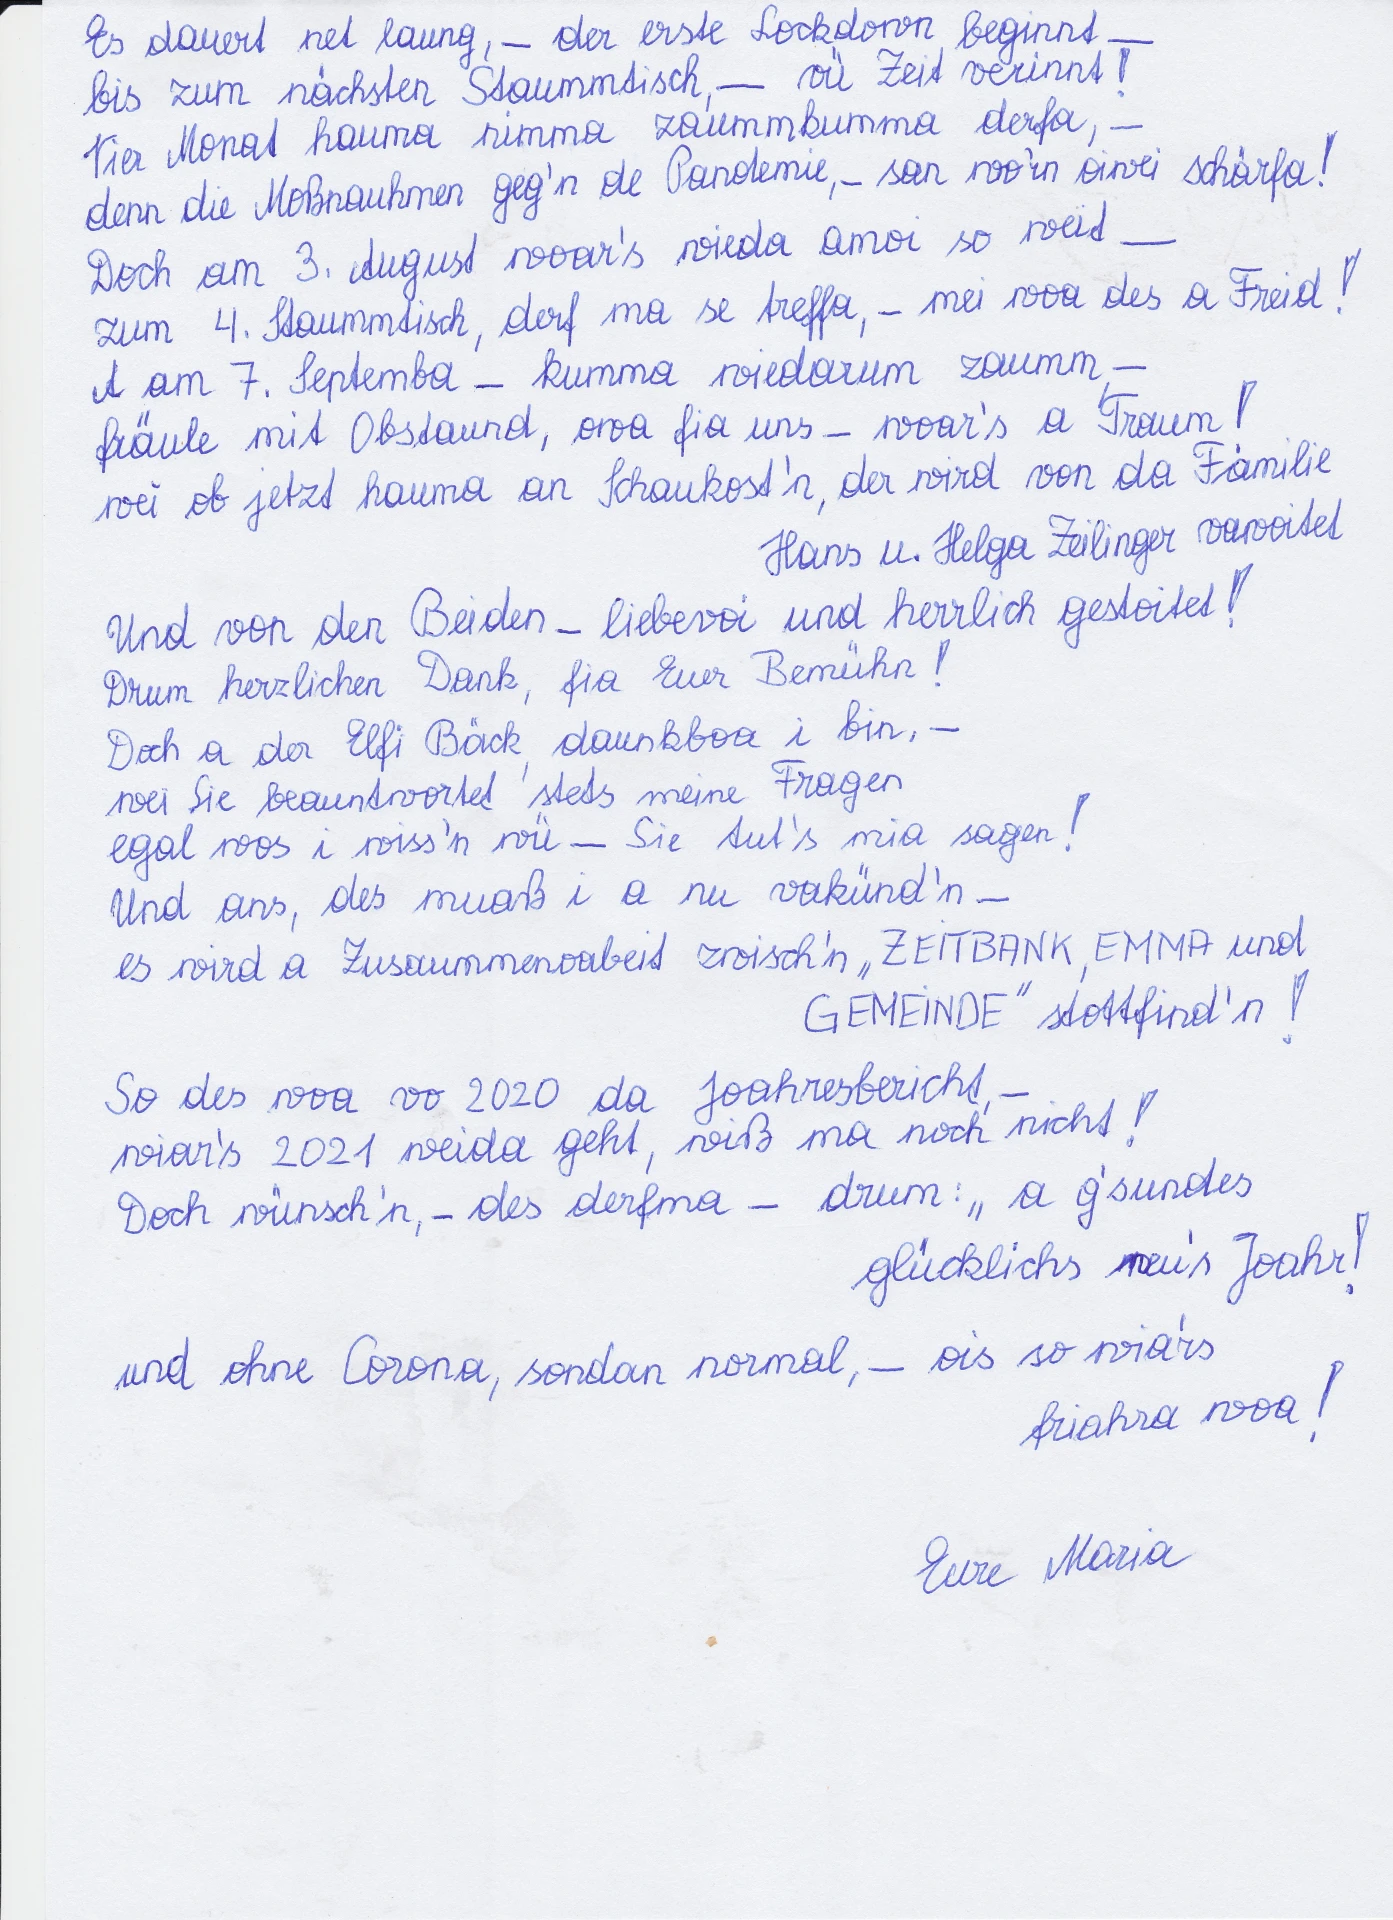 Es dauert net laung, – der erste Lockdown beginnt –
bis zum nächsten Staummtisch, – vü Zeit verinnt!
Vier Monat hauma nimma zaummkumma derfa, –
denn die Moßnauhmen geg'n de Pandemie, – san wo'rn oiwei schärfa!
Doch am 3. August wooar's wieda amoi so weit –
zum 4. Staummtisch, derf ma se treffa, – mei woa des a Freid!
A am 7. Septemba – kumma wiedarum zaumm, –
fräule mit Obstaund, owa fia uns – wooar's a Traum!
wei ob jetzt hauma an Schaukost'n, der wird von da Familie
Hans u. Helga Zeilinger vawoitet
Und von den Beiden – liebevoi und herrlich gestoitet!
Drum herzlichen Dank, fia Euer Bemühn!
Doch a der Elfi Bäck, daunkboa i bin, –
wei Sie beauntwortet stets meine Fragen
egal wos i wiss'n wü – Sie tut's mia sagen!
Und ans, des muaß i a nu vakünd'n –
es wird a Zusaummenoabeit zwisch'n „ZEITBANK, EMMA und
GEMEINDE" stottfind'n!
So des woa vo 2020 da Joahresbericht, –
wiar's 2021 weida geht, wiß ma noch nicht!
Doch wünsch'n, – des derfma – drum: „a g'sundes
glücklichs neu's Joahr!
und ohne Corona, sondan normal, – ois so wia's
friahra woa!
Eure Maria